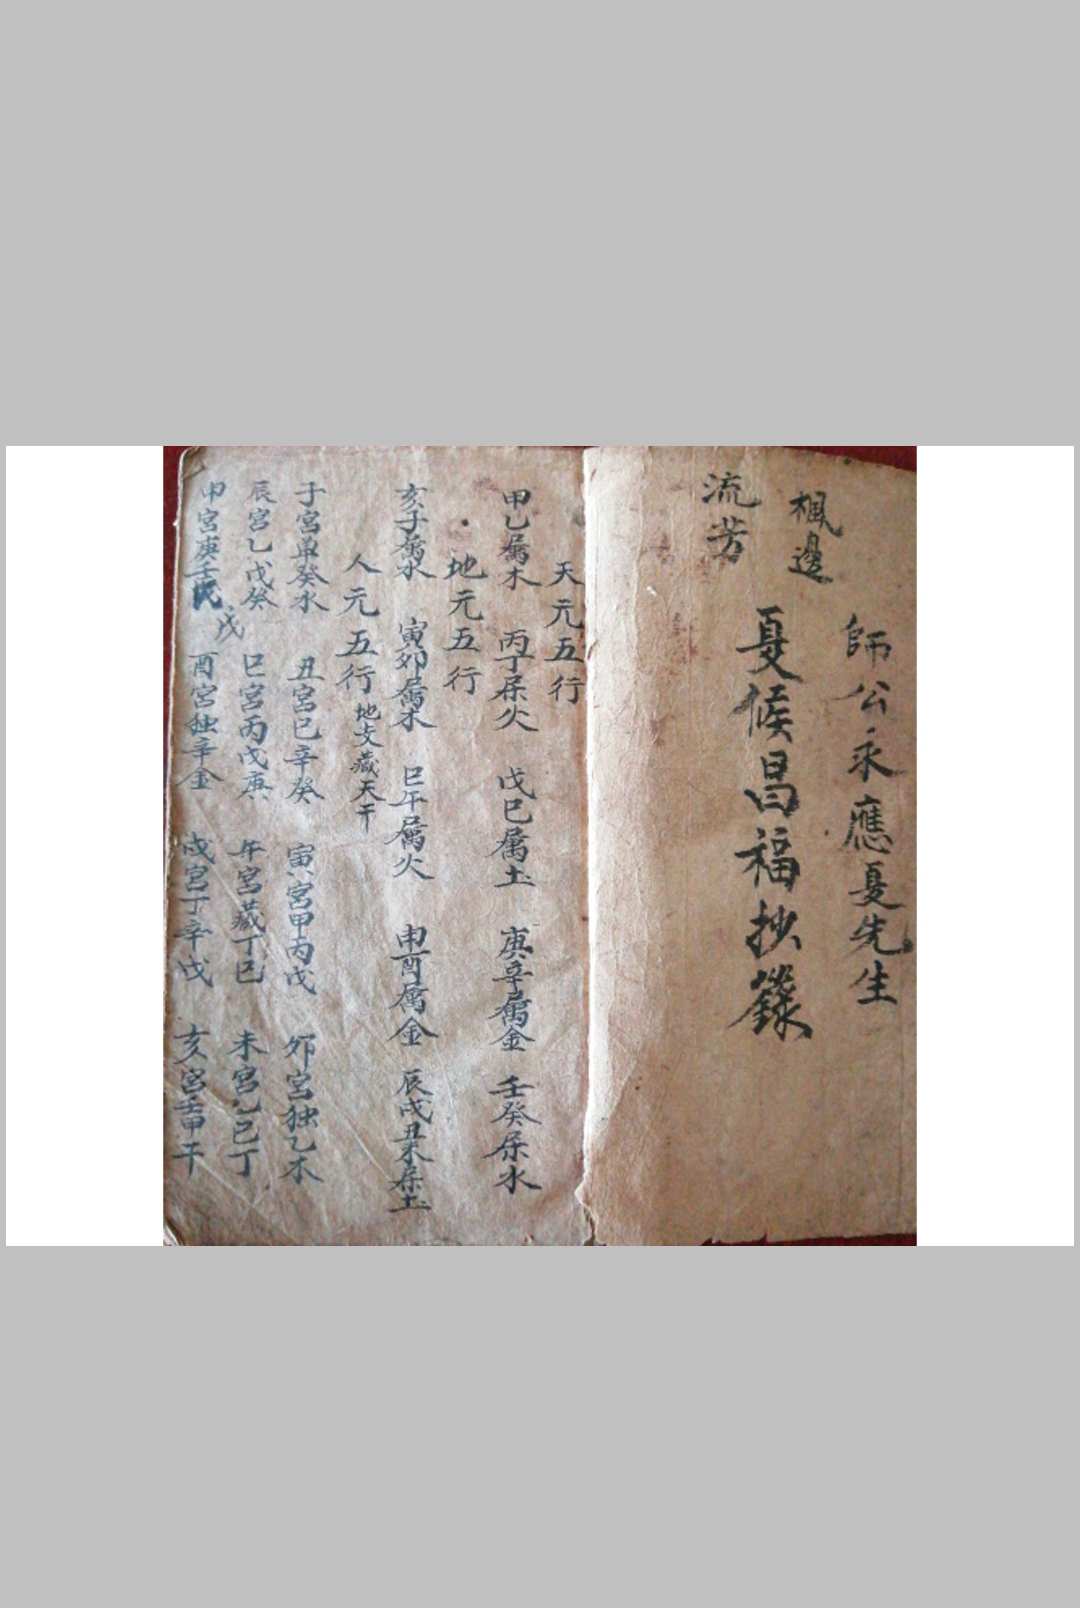 楓邊
師公永應夏先生
流芳
夏候昌福抄籙
天元五行
甲乙属木 丙丁属火 戊巳属土 庚辛属金 壬癸属水
地元五行
亥子属水 寅卯属木 巳午属火 申酉属金 辰戌丑未属土
人元五行 地支藏天干
子宮单癸水 丑宮巳辛癸 寅宮甲丙戊 卯宮独乙木
辰宮乙戊癸 巳宮丙戊庚 午宮藏丁巳 未宮乙巳丁
申宮庚壬戊 酉宮独辛金 戌宮丁辛戊 亥宮壬甲干